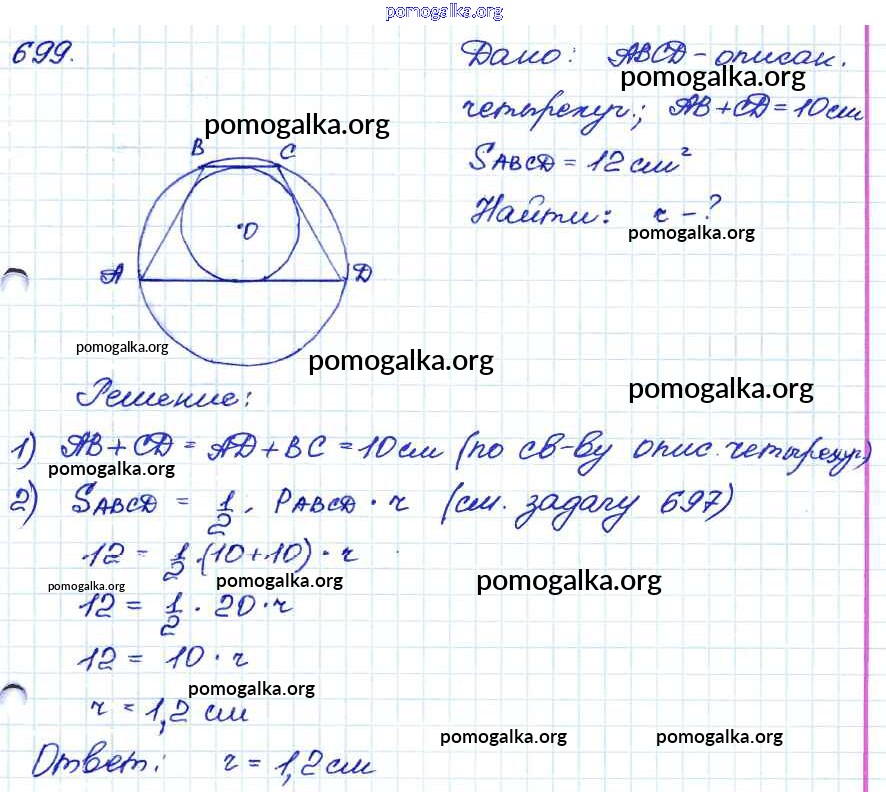 pomogalka.org
699.
Дано: ABCD - описан.
pomogalka.org
четырехуг.; AB + CD = 10 см
pomogalka.org
S ABCD = 12 см²
Найти: r - ?
pomogalka.org
B C
O
A D
pomogalka.org
pomogalka.org
pomogalka.org
Решение:
1) AB + CD = AD + BC = 10 см (по св-ву опис. четырехуг.)
pomogalka.org
2) S ABCD = 1/2 · P ABCD · r (см. задачу 697)
12 = 1/2 · (10 + 10) · r
pomogalka.org pomogalka.org pomogalka.org
12 = 1/2 · 20 · r
12 = 10 · r
pomogalka.org
r = 1,2 см
pomogalka.org pomogalka.org
Ответ: r = 1,2 см